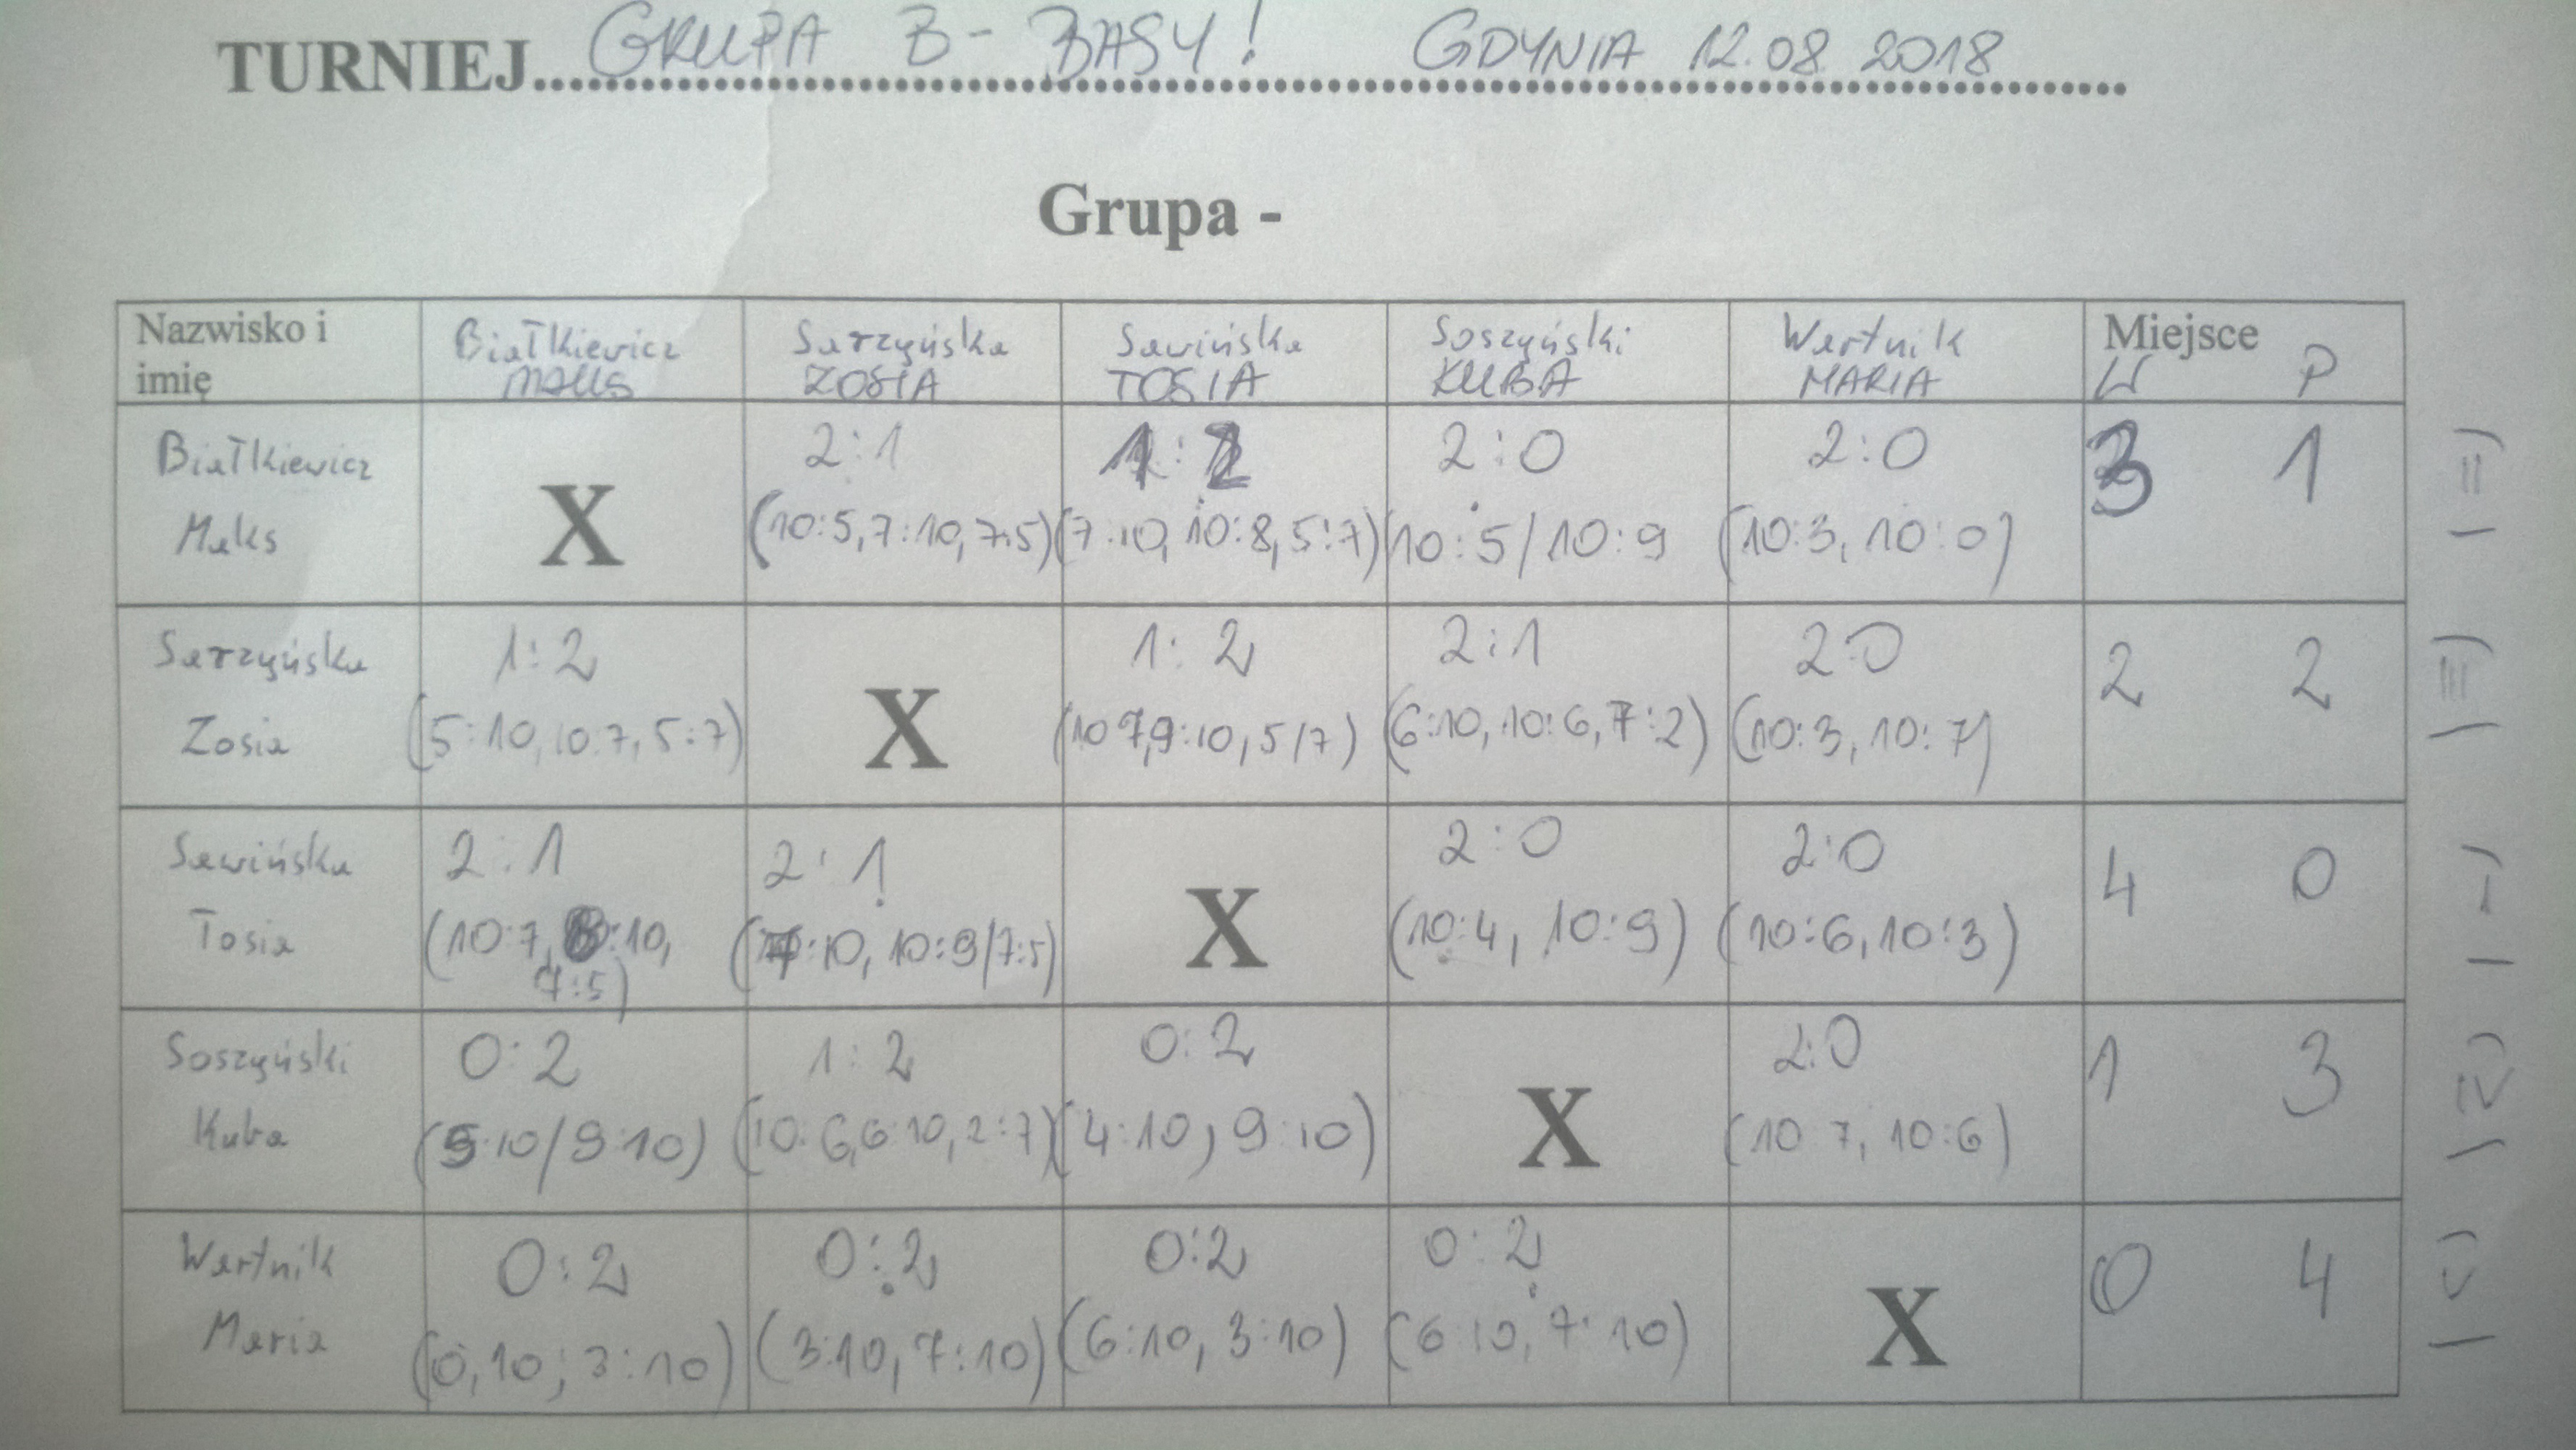 TURNIEJ GRUPA B - BASY! GDYNIA 12.08 2018
Grupa -
Nazwisko i imię Białkiewicz MAKS Sarzyńska ZOSIA Sawińska TOSIA Soszyński KUBA Wertnik MARIA Miejsce W P
Białkiewicz 2:1 1:2 2:0 2:0 3 1 II
Maks X (10:5, 7:10, 7:5) (7:10, 10:8, 5:7) (10:5/10:9 (10:3, 10:0)
Sarzyńska 1:2 1:2 2:1 2:0 2 2 III
Zosia (5:10, 10:7, 5:7) X (10 7, 9:10, 5/7) (6:10, 10:6, 7:2) (10:3, 10:7)
Sawińska 2:1 2:1 2:0 2:0 4 0 I
Tosia (10:7, 8:10, 7:5) (7:10, 10:9/7:5) X (10:4, 10:9) (10:6, 10:3)
Soszyński 0:2 1:2 0:2 2:0 1 3 IV
Kuba (5:10/9:10) (10:6, 6:10, 2:7) (4:10, 9:10) X (10:7, 10:6)
Wertnik 0:2 0:2 0:2 0:2 0 4 V
Maria (0,10; 3:10) (3:10, 7:10) (6:10, 3:10) (6:10, 7:10) X